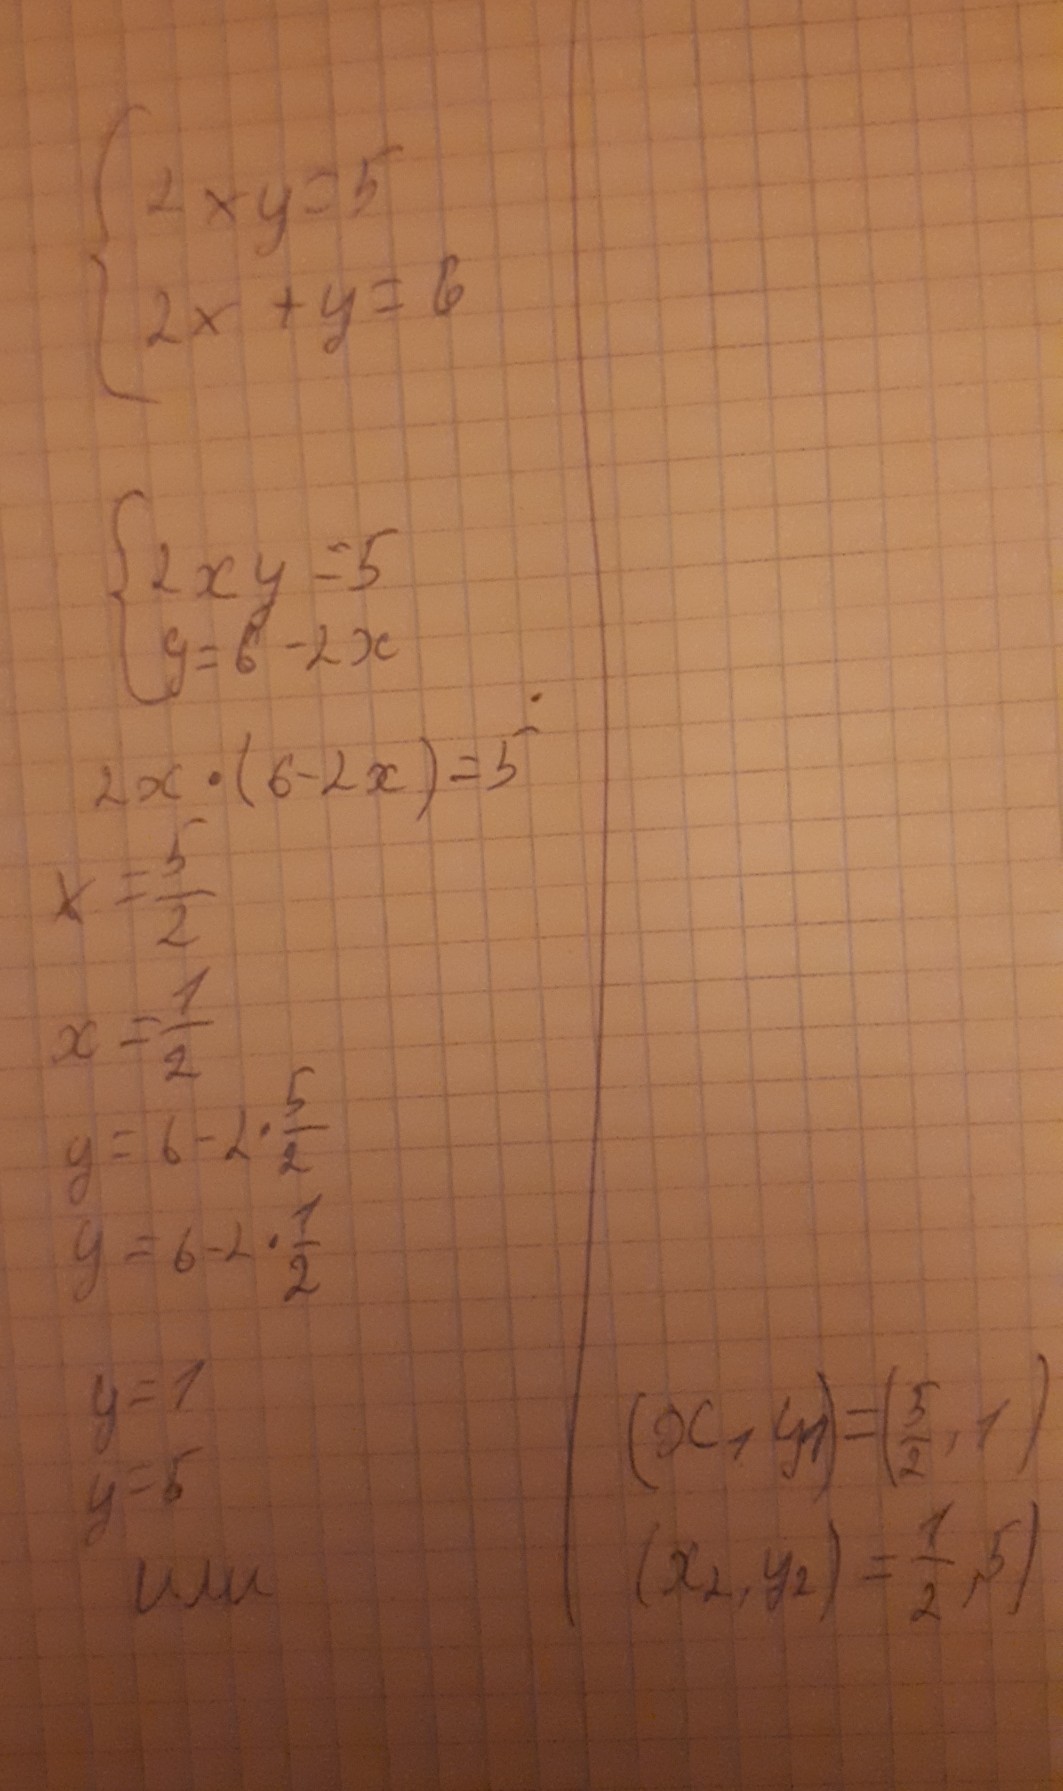 2xy=5
2x+y=6
2xy=5
y=6-2x
2x·(6-2x)=5
x=5/2
x=1/2
y=6-2·5/2
y=6-2·1/2
y=1
y=5
или
(x₁, y₁)=(5/2, 1)
(x₂, y₂)=1/2, 5)